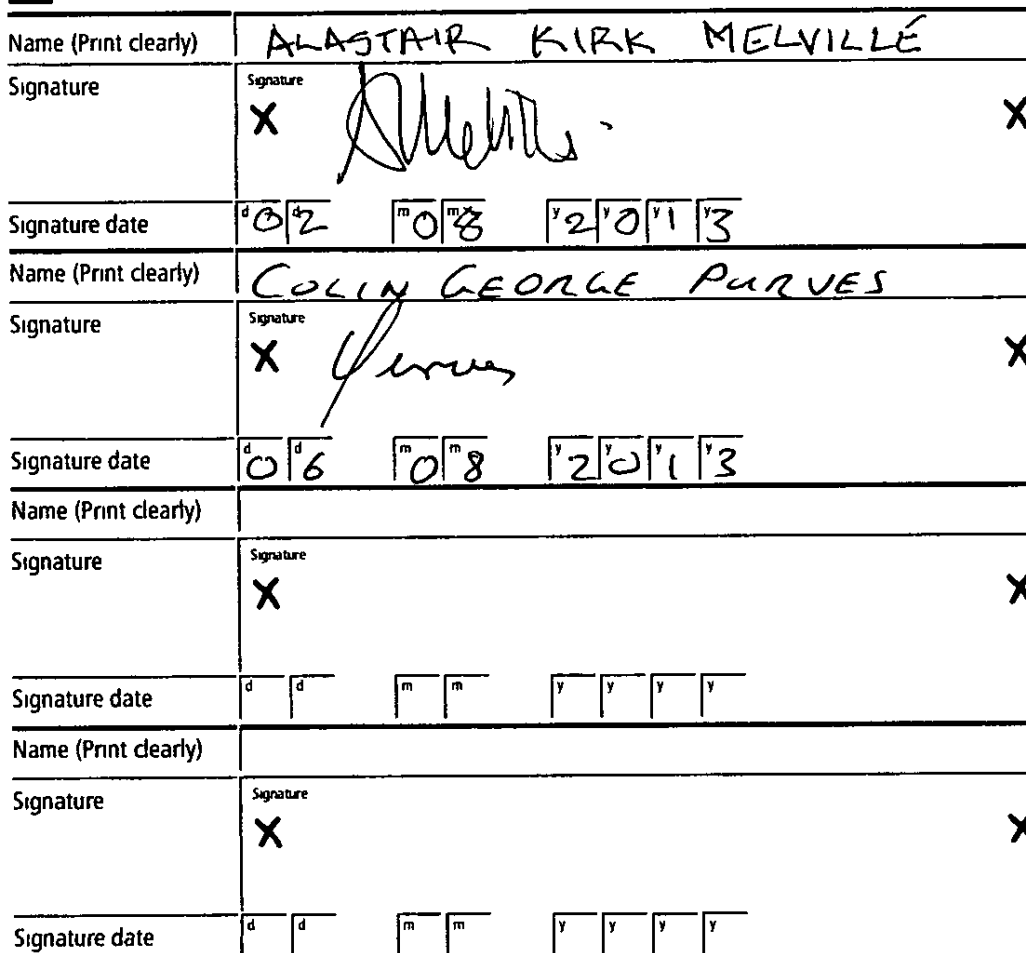 Name (Print clearly) ALASTAIR KIRK MELVILLÉ
Signature Signature
X AMelville X
Signature date d0 d2 m0 m8 y2 y0 y1 y3
Name (Print clearly) COLIN GEORGE PURVES
Signature Signature
X Purves X
Signature date d0 d6 m0 m8 y2 y0 y1 y3
Name (Print clearly)
Signature Signature
X X
Signature date d d m m y y y y
Name (Print clearly)
Signature Signature
X X
Signature date d d m m y y y y